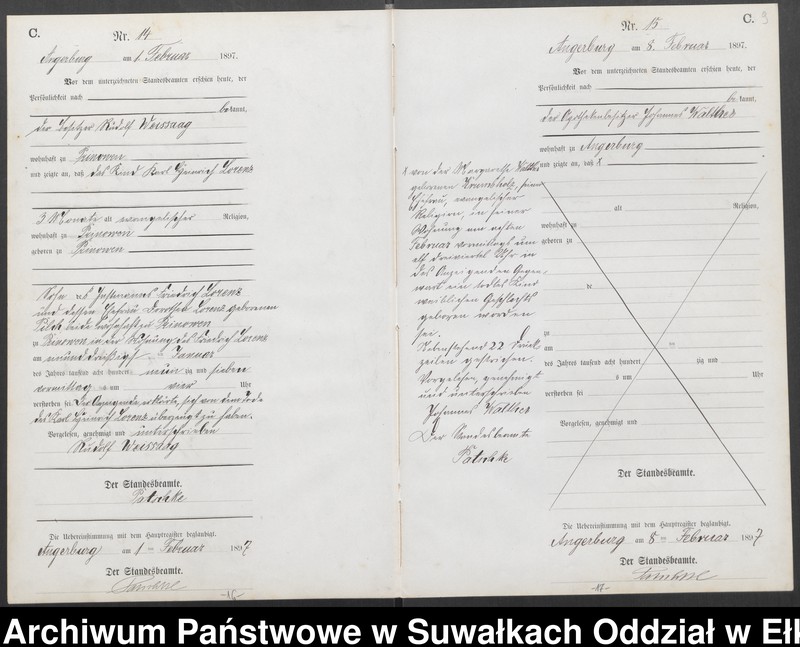 C.
Nr. 14
Angerburg am 1. Februar 1897.
Vor dem unterzeichneten Standesbeamten erschien heute, der
Persönlichkeit nach
bekannt,
der Besitzer Rudolf Weissaag
wohnhaft zu
und zeigte an, daß das Kind Karl Heinrich Lorenz
3 Monate alt evangelischer Religion,
wohnhaft zu
geboren zu
Sohn des Instmannes Friedrich Lorenz
und dessen Ehefrau Dorothea Lorenz geborenen
beide wohnhaft zu
zu in der Wohnung des Friedrich Lorenz
am einunddreißigsten Januar
des Jahres tausend acht hundert neun zig und sieben
vormittag um vier Uhr
verstorben sei. Der Anzeigende erklärte, sich von dem Tode
des Karl Heinrich Lorenz überzeugt zu haben.
Vorgelesen, genehmigt und unterschrieben
Rudolf Weissaag
Der Standesbeamte.
Patschke
Die Uebereinstimmung mit dem Hauptregister beglaubigt.
Angerburg am 1ten Februar 1897
Der Standesbeamte.
-16-
C. 9
Nr. 15
Angerburg am 8. Februar 1897.
Vor dem unterzeichneten Standesbeamten erschien heute, der
Persönlichkeit nach
bekannt,
der Apothekenbesitzer Johannes Walther
wohnhaft zu Angerburg
und zeigte an, daß
von der Margarethe Walther
geborenen Krumbholz, seiner
Ehefrau, evangelischer
Religion, in seiner
Wohnung am
Februar vormittags um
elf dreiviertel Uhr in
des Anzeigenden Gegen-
wart ein todtes Kind
weiblichen Geschlechts
geboren worden
sei.
Nebenstehend 22 Druck
zeilen gestrichen.
Vorgelesen, genehmigt
und unterschrieben
Johannes Walther
Der Standesbeamte
Patschke
alt Religion,
wohnhaft zu
geboren zu
de
zu
am ten
des Jahres tausend acht hundert zig und
um Uhr
verstorben sei
Vorgelesen, genehmigt und
Der Standesbeamte.
Die Uebereinstimmung mit dem Hauptregister beglaubigt.
Angerburg am 8ten Februar 1897
Der Standesbeamte.
-17-
Archiwum Państwowe w Suwałkach Oddział w Ełk